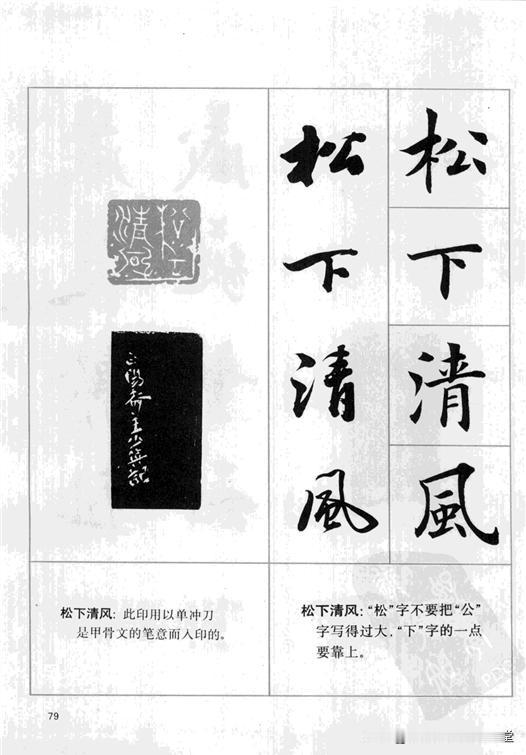 松下清風
松下清風
松下清风
松下清风：此印用以单冲刀
是甲骨文的笔意而入印的。
松下清风：“松”字不要把“公”
字写得过大，“下”字的一点
要靠上。
79